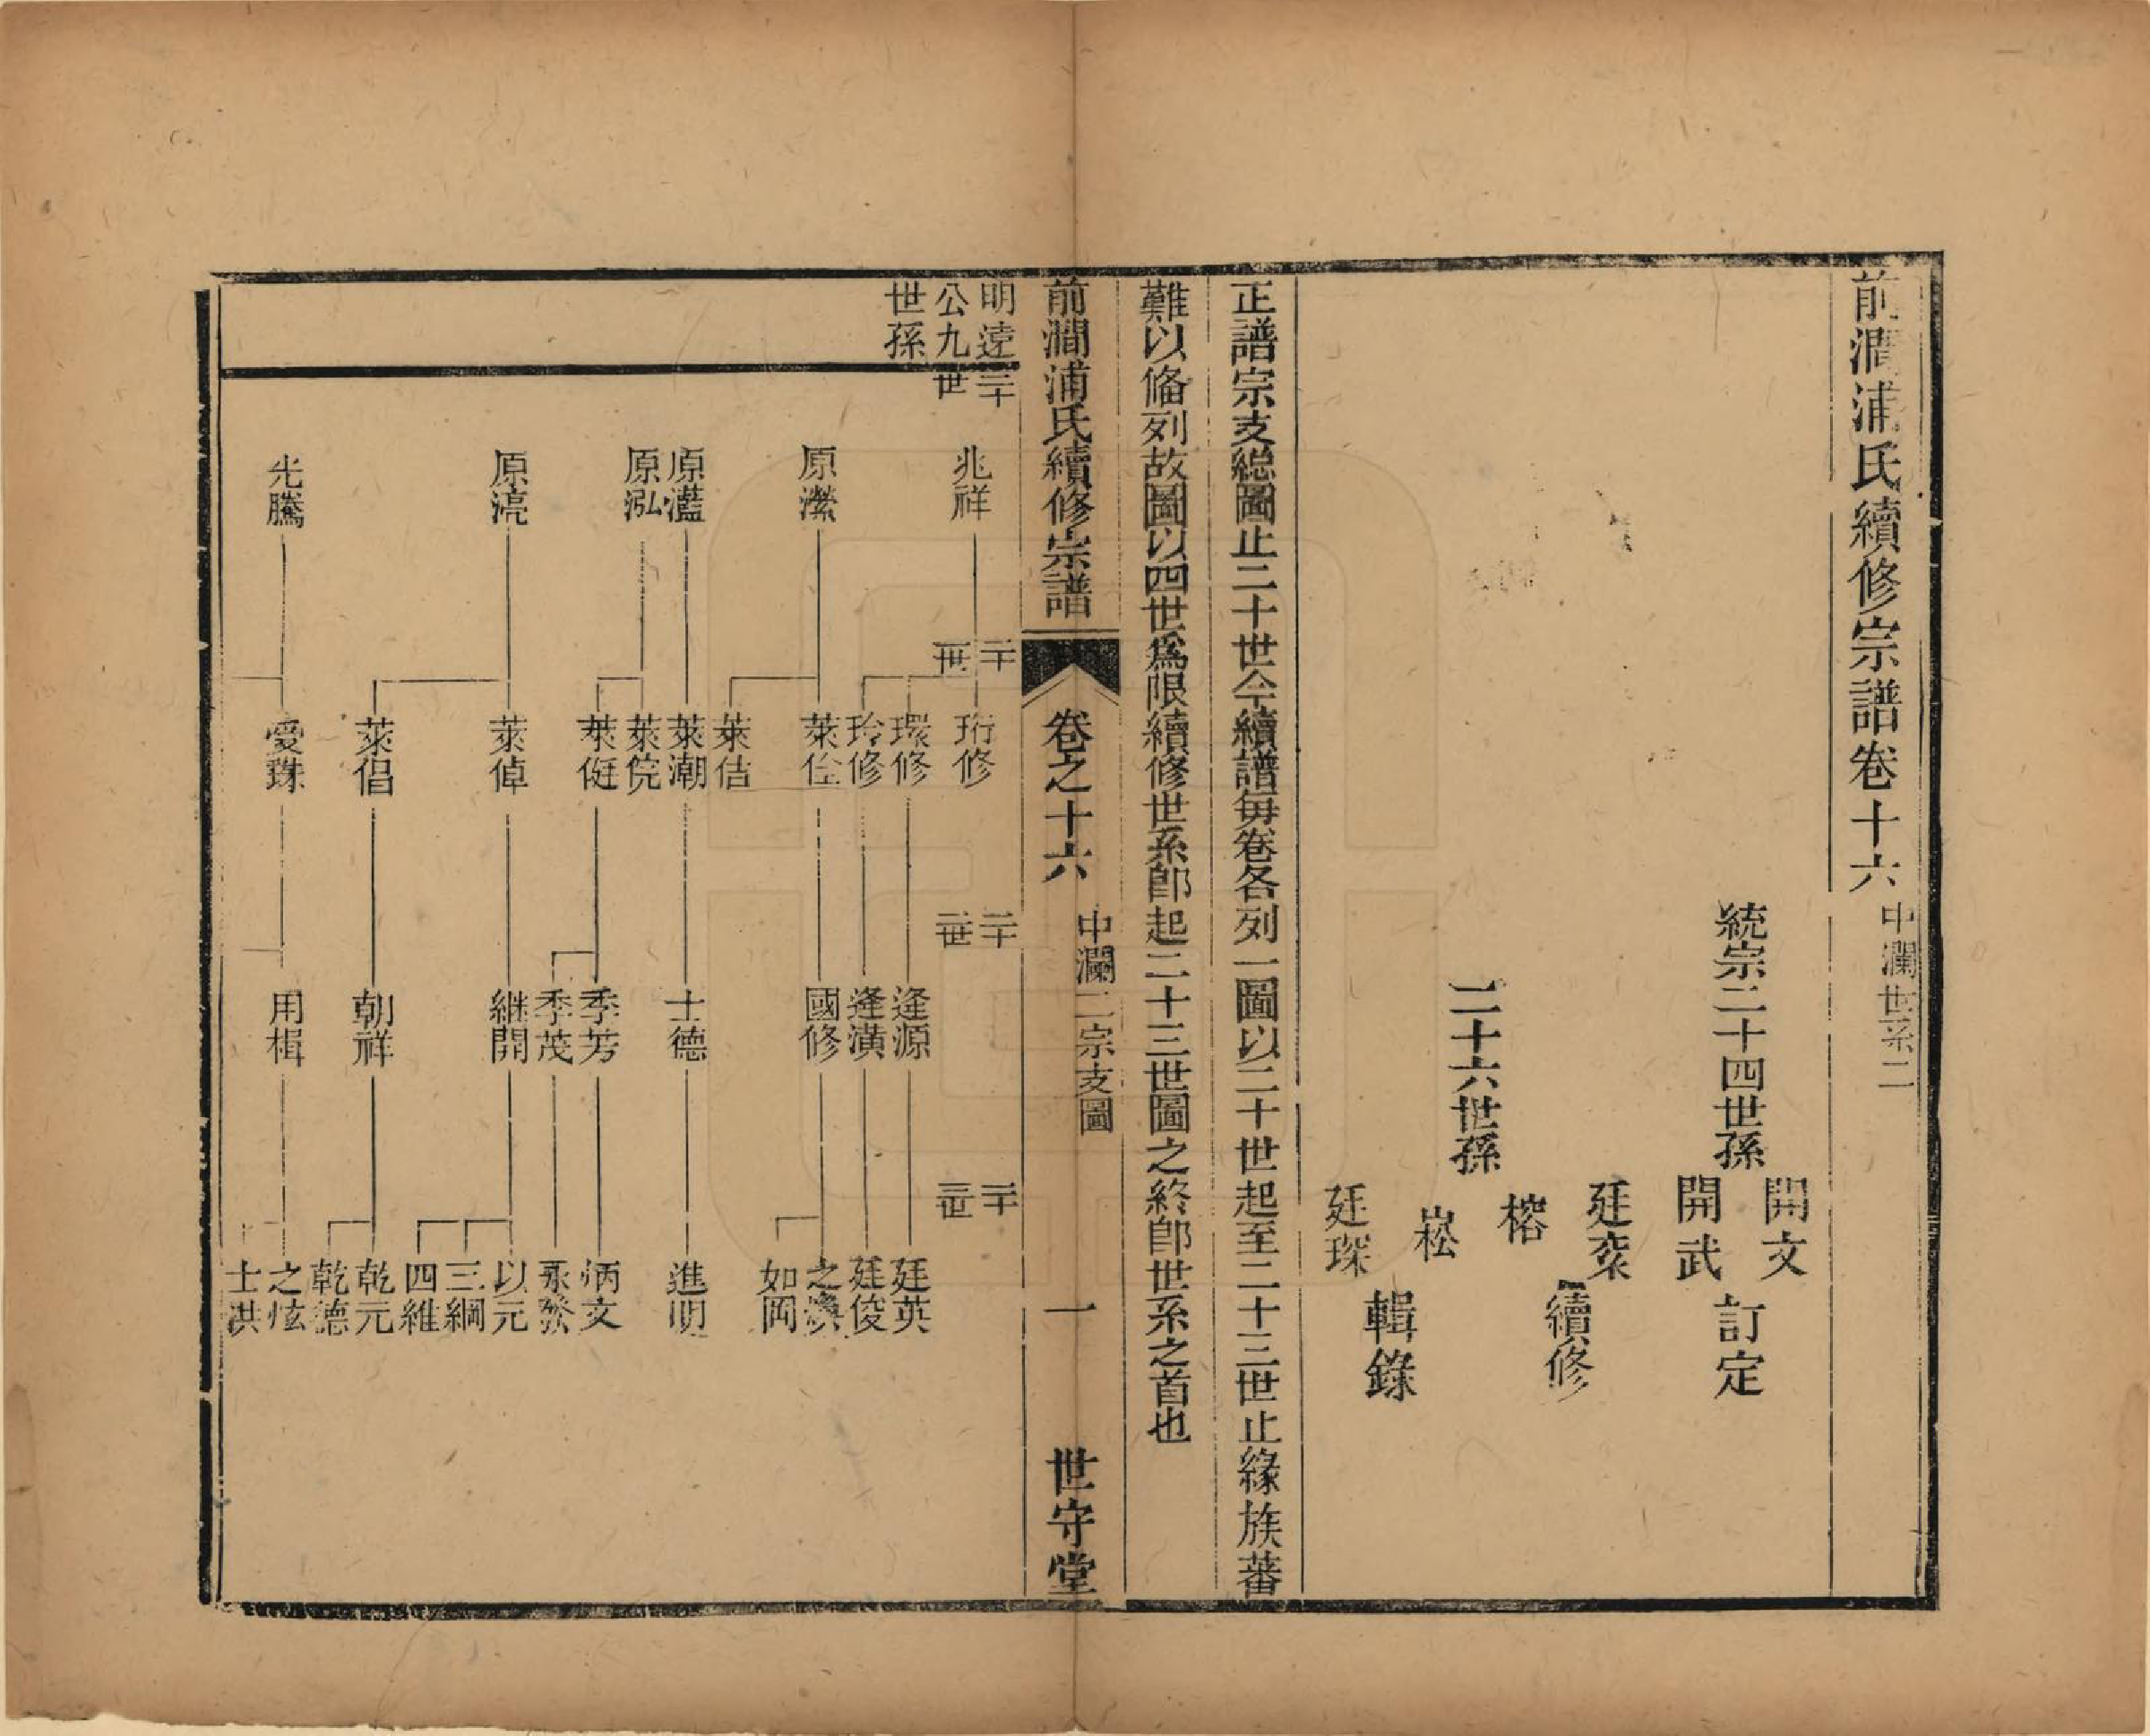 前澗浦氏續修宗譜卷十六 中瀾世系二
統宗二十四世孫 開文 開武 訂定
廷寀 榕 續修
二十六世孫
崧 廷琛 輯錄
正譜宗支總圖止二十世今續譜每卷各列一圖以二十世起至二十三世止緣族蕃
難以俻列故圖以四世爲限續修世系卽起二十三世圖之終卽世系之首也
前澗浦氏續修宗譜 卷之十六 中瀾二宗支圖 一 世守堂
明遠公九世孫
二十世
兆祥 原瀠 原灆 原泓 原渟 光騰
二十一世
珩修 環修 玲修 萊佺 萊佶 萊潮 萊俒 萊侹 萊倬 萊倡 愛珠
二十二世
逢源 逢潢 國修 士德 季芳 季茂 継開 朝祥 用楫
二十三世
廷英 廷俊 之 如岡 進明 炳文 承 以元 三綱 四維 乾元 乾德 之炫 士洪